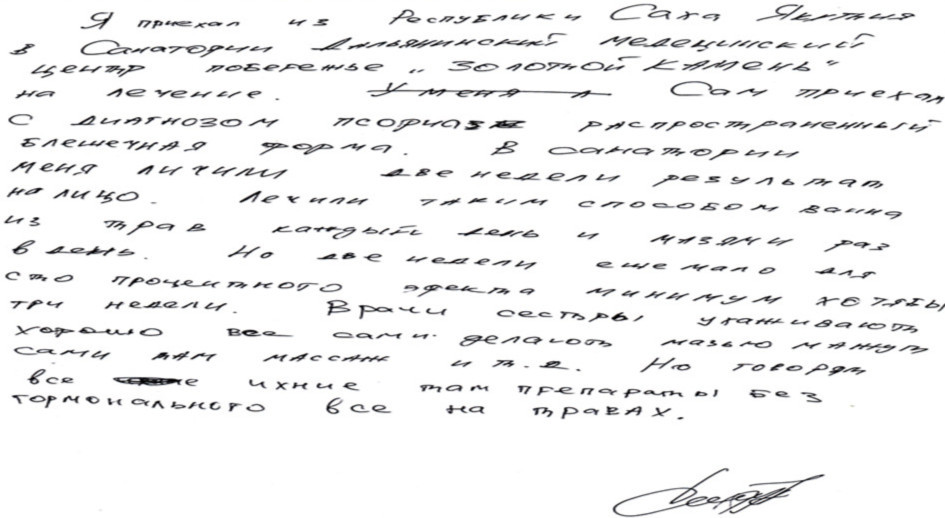 Я приехал из Республики Саха Якутия
в Санатории Дальянинский медецинский
центр побережье „Золотной камень"
на лечение. У меня л Сам приехал
с диагнозом псориаз распространенный
блешечная форма. В санатории
меня личили две недели результат
на лицо. Лечили таким способом ванна
из трав каждый день и мазями раз
в день. Но две недели еше мало для
сто процентного эфекта минимум хотябы
три недели. Врачи сестры ухаживають
хорошо все сами делають мазью мажут
сами вам массаж и т.д. Но говорят
все ихние там препараты без
гормонального все на травах.